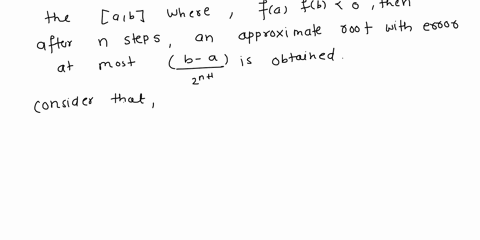 the [a,b] where, f(a) f(b) < 0, then
after n steps, an approximate root with error
at most (b-a)/2^(n+1) is obtained.
consider that,